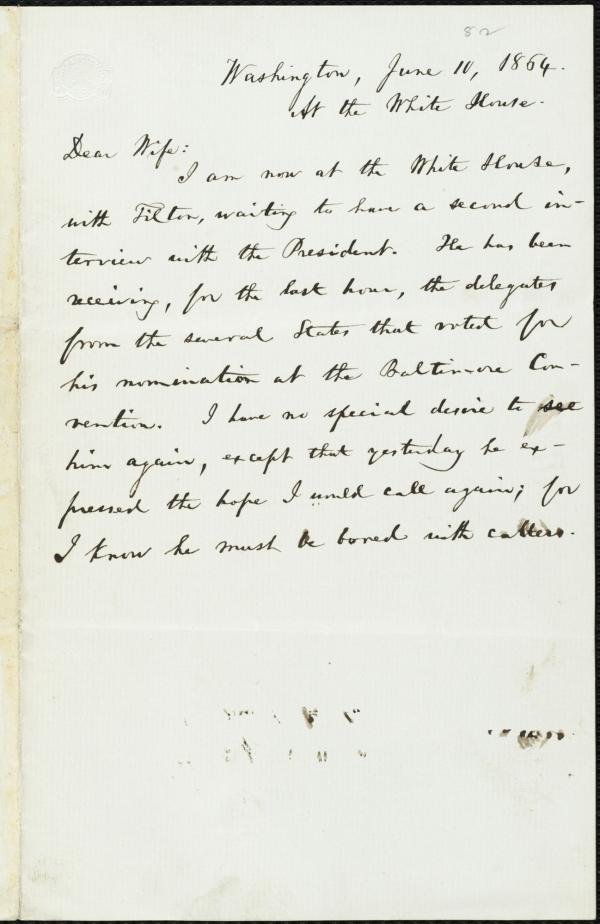 82
Washington, June 10, 1864.
At the White House.
Dear Wife:
I am now at the White House,
with Tilton, waiting to have a second in-
terview with the President. He has been
receiving, for the last hour, the delegates
from the several States that voted for
his nomination at the Baltimore Con-
vention. I have no special desire to see
him again, except that yesterday he ex-
pressed the hope I would call again; for
I know he must be bored with callers.